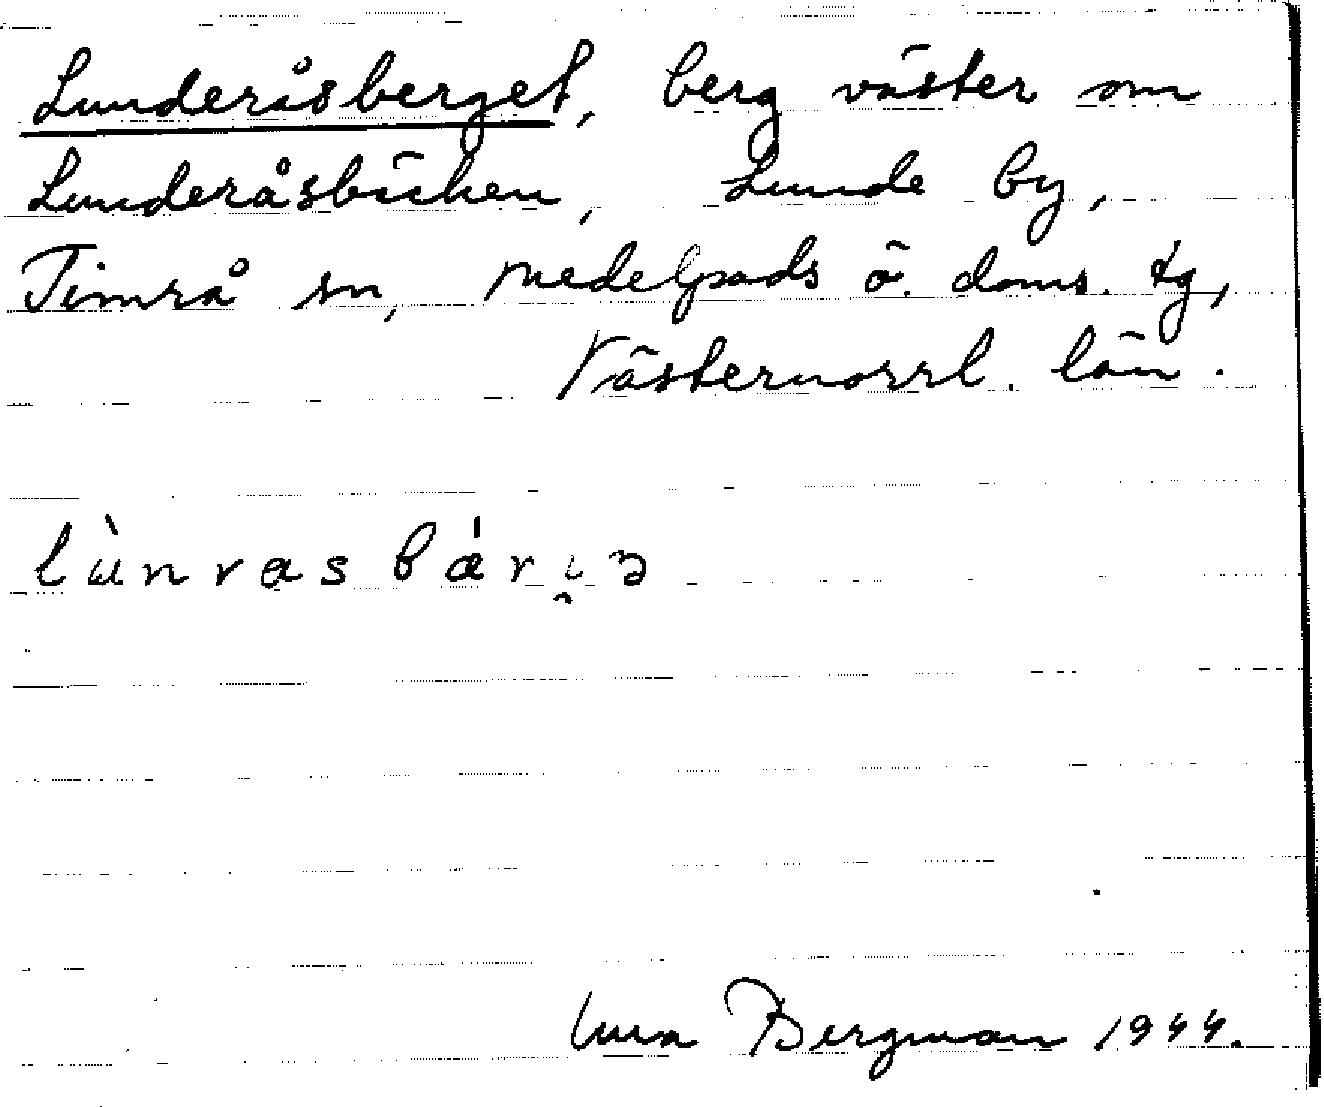 Lunderåsberget, berg väster om
Lunderåsbäcken, Lunde by,
Timrå sn, Medelpads ö. doms. tg,
Västernorrl. län.
Bergman 1944.